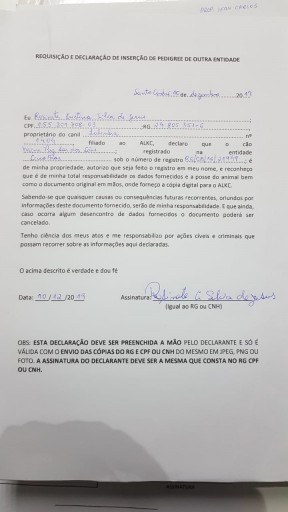 PROF. IVAN CARLOS
REQUISIÇÃO E DECLARAÇÃO DE INSERÇÃO DE PEDIGREE DE OUTRA ENTIDADE
Santo André, 10 de dezembro 2019
Eu
CPF RG
proprietário do canil nº
filiado ao ALKC, declaro que o cão
registrado na entidade
sob o número de registro é
de minha propriedade, autorizo que seja feito o registro em meu nome, e reconheço
que é de minha total responsabilidade os dados fornecidos e a posse do animal bem
como o documento original em mãos, onde forneço a cópia digital para o ALKC.
Sabendo-se que quaisquer causas ou consequências futuras recorrentes, oriundos por
informações deste documento fornecido, serão de minha responsabilidade. E que ainda,
caso ocorra algum desencontro de dados fornecidos o documento poderá ser
cancelado.
Tenho ciência dos meus atos e me responsabilizo por ações cíveis e criminais que
possam recorrer sobre as informações aqui declaradas.
O acima descrito é verdade e dou fé
Data: 10/12/2019 Assinatura: Silva de Jesus
(Igual ao RG ou CNH)
OBS: ESTA DECLARAÇÃO DEVE SER PREENCHIDA A MÃO PELO DECLARANTE E SÓ É
VÁLIDA COM O ENVIO DAS CÓPIAS DO RG E CPF OU CNH DO MESMO EM JPEG, PNG OU
FOTO. A ASSINATURA DO DECLARANTE DEVE SER A MESMA QUE CONSTA NO RG CPF
OU CNH.